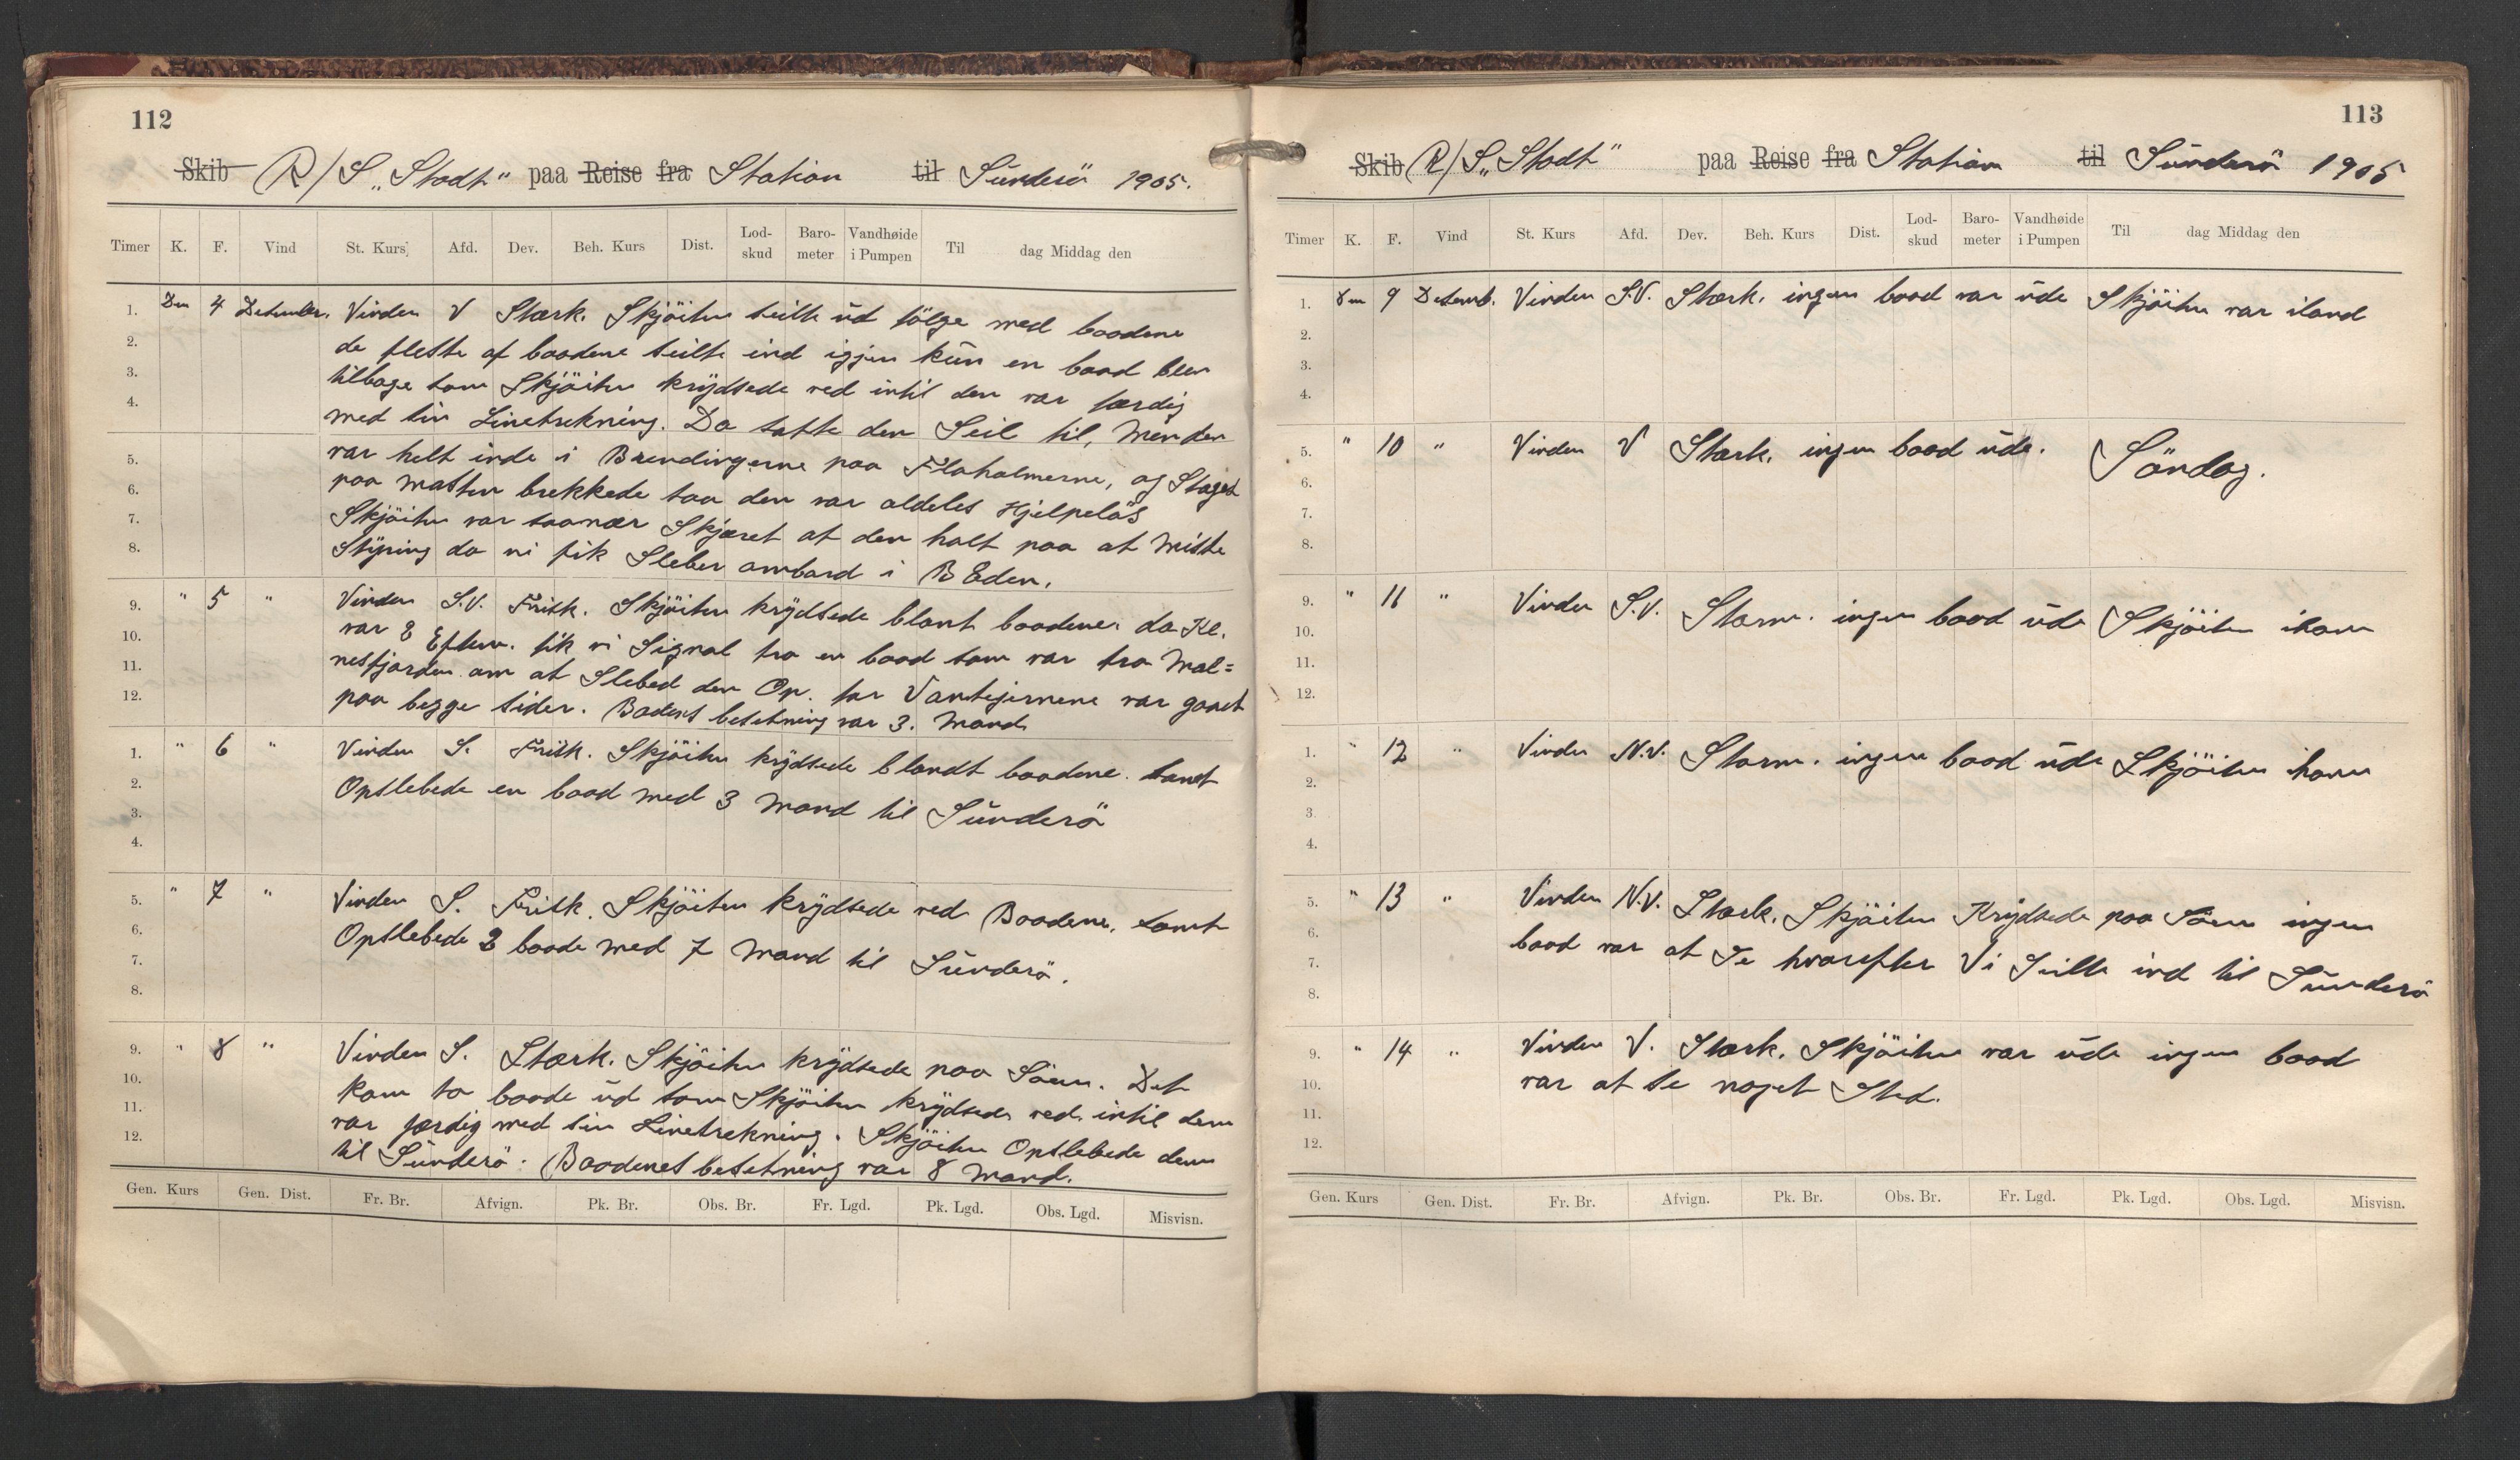 112
Skib R/S „Stadt" paa Reise fra Station til Sünderö 1905.
Timer K. F. Vind St. Kurs Afd. Dev. Beh. Kurs Dist. Lod-skud Baro-meter Vandhøide i Pumpen Til dag Middag den
1. Den 4 Desember. Vinden V Stærk. Skjöiten seilte ud fölge med baadene
2. de fleste af baadene seilte ind igjen kün en baad blev
3. tilbage som Skjöiten krÿdsede ved intil den var færdig
4. med sin Linetrekning. Da satte den Seil til, men den
var helt inde i Brendingerne paa Flaholmerne, og Staget
5. paa masten brekkede saa den var aldeles Hjelpelös
6. Skjöiten var saa nær Skjæret at den halt paa at Miste
7. Stÿring da vi fik Sleber ombord i B Eden.
8.
9. " 5 " Vinden S.V. Frisk. Skjöiten krÿdsede blant baadene. da Kl.
10. var 2 Efterm. fik vi Signal fra en baad som var fra Mal=
11. nesfjorden om at Slebed den Op. for Vantejernene var gaaet
12. paa begge sider. Badens besetning var 3. Mand
1. " 6 " Vinden S. Frisk. Skjöiten krÿdsede blandt baadene. samt
2. Opslebede en baad med 3 Mand til Sünderö
3.
4.
5. " 7 " Vinden S. Frisk. Skjöiten krÿdsede ved Baadene, samt
6. Opslebede 2 baade med 7 Mand til Sünderö.
7.
8.
9. " 8 " Vinden S. Stærk. Skjöiten krÿdsede paa Söen. Det
10. kom to baade üd som Skjöiten krÿdsede ved intil dem
11. var færdig med sin Linetrekning. Skjöiten Opslebede dem
12. til Sünderö. Baadenes besetning var 8 Mand.
Gen. Kurs Gen. Dist. Fr. Br. Afvign. Pk. Br. Obs. Br. Fr. Lgd. Pk. Lgd. Obs. Lgd. Misvisn.
113
Skib R/S „Stadt" paa Reise fra Station til Sünderö 1905
Timer K. F. Vind St. Kurs Afd. Dev. Beh. Kurs Dist. Lod-skud Baro-meter Vandhøide i Pumpen Til dag Middag den
1. Den 9 Desemb. Vinden S.V. Stærk. ingen baad var üde Skjöiten var iland
2.
3.
4.
5. " 10 " Vinden V Stærk. ingen baad üde. Söndag.
6.
7.
8.
9. " 11 " Vinden S.V. Storm. ingen baad üde Skjöiten ihavn
10.
11.
12.
1. " 12 " Vinden N.V. Storm. ingen baad üde Skjöiten ihavn
2.
3.
4.
5. " 13 " Vinden N.V. Stærk. Skjöiten Krÿdsede paa Söen ingen
6. baad var at Se hvorefter Vi Seilte ind til Sünderö
7.
8.
9. " 14 " Vinden V. Stærk. Skjöiten var üde ingen baad
10. var at se noget Sted.
11.
12.
Gen. Kurs Gen. Dist. Fr. Br. Afvign. Pk. Br. Obs. Br. Fr. Lgd. Pk. Lgd. Obs. Lgd. Misvisn.